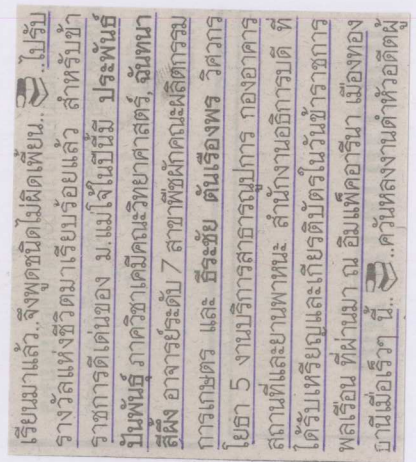 เรียนมาแล้ว..จึงพูดชนิดไม่ผิดเพี้ยน.. ..ไปรับ
รางวัลแห่งชีวิตมาเรียบร้อยแล้ว สำหรับข้า
ราชการดีเด่นของ ม.แม่โจ้ในปีนี้มี ประพันธ์
ปันพันธุ์ ภาควิชาเคมีคณะวิทยาศาสตร์, ฉันทนา
สีผึ้ง อาจารย์ระดับ 7 สาขาพืชผักคณะผลิตกรรม
การเกษตร และ ธีระชัย ต้นเรืองพร วิศวกร
โยธา 5 งานบริการสาธารณูปการ กองอาคาร
สถานที่และยานพาหนะ สำนักงานอธิการบดี ที่
ได้รับเหรียญและเกียรติบัตรในวันข้าราชการ
พลเรือน ที่ผ่านมา ณ อิมแพ็คอารีน่า เมืองทอง
ธานีเมื่อเร็วๆ นี้.. ..ควันหลงงานดำหัวอดีตผู้